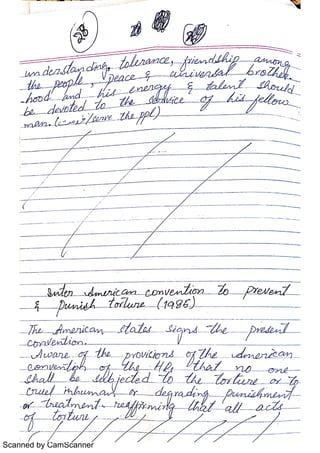 28
understanding, tolerance, friendship among
the people, peace & universal brother-
hood and his energy & talent should
be devoted to the service of his fellow
men. (serve the ppl)
Inter American convention to prevent
& Punish torture (1985)
The American states signs the present
convention.
Aware of the provisions of the American
convention of the HRs that no one
shall be subjected to the torture or to
cruel inhuman or degrading punishment
or treatment. reaffirming that all acts
of torture
Scanned by CamScanner